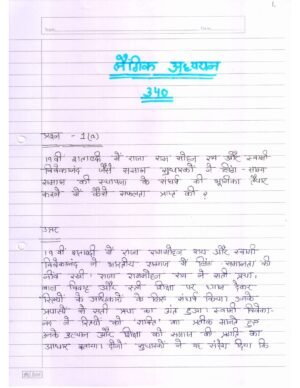 1.
लैंगिक अध्ययन
340
प्रश्न - 1(a)
19वी शताब्दी में राजा राम मोहन राय और स्वामी
विवेकानंद जैसे समाज सुधारकों ने लिंग - साम्य
समाज की स्थापना के संघर्ष की भूमिका तैयार
करने में कैसे सफलता प्राप्त की ?
उत्तर
19वी शताब्दी में राजा राममोहन राय और स्वामी
विवेकानंद ने भारतीय समाज में लिंग समानता की
नींव रखी। राजा राममोहन राय ने सती प्रथा,
बाल विवाह और स्त्री शिक्षा पर ध्यान देकर
स्त्रियों के अधिकारों के लिए संघर्ष किया। उनके
प्रयासों से सती प्रथा का अंत हुआ। स्वामी विवेका-
नंद ने स्त्रियों को शक्ति का प्रतीक मानते हुए
उनके उत्थान और शिक्षा को समाज की प्रगति का
आधार बताया। दोनों सुधारकों ने यह संदेश दिया कि